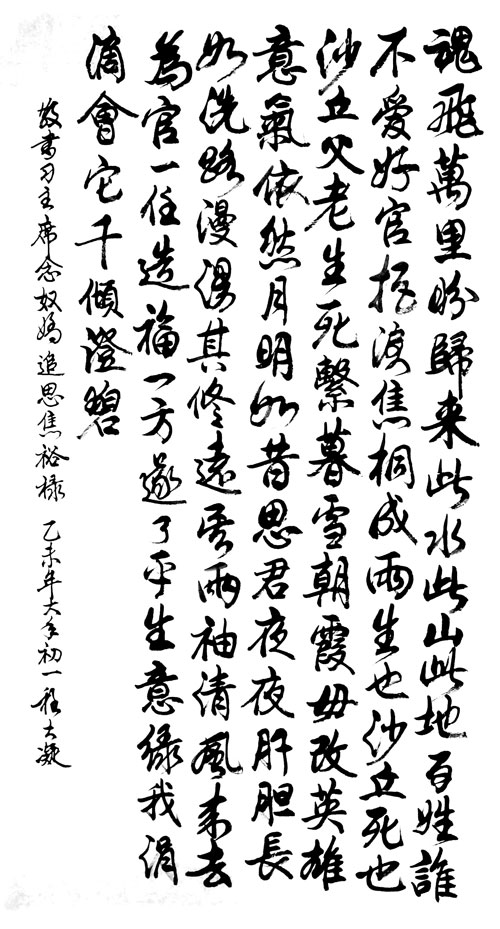 魂飛萬里盼歸来此水此山此地百姓誰
不愛好官把淚焦桐成雨生也沙丘死也
沙丘父老生死繫暮雪朝霞毋改英雄
意氣依然月明如昔思君夜夜肝胆長
如洗路漫漫其修遠矣兩袖清風来去
為官一任造福一方遂了平生意綠我涓
滴會它千傾澄碧
敬書习主席念奴嬌追思焦裕禄 乙未年大年初一程大